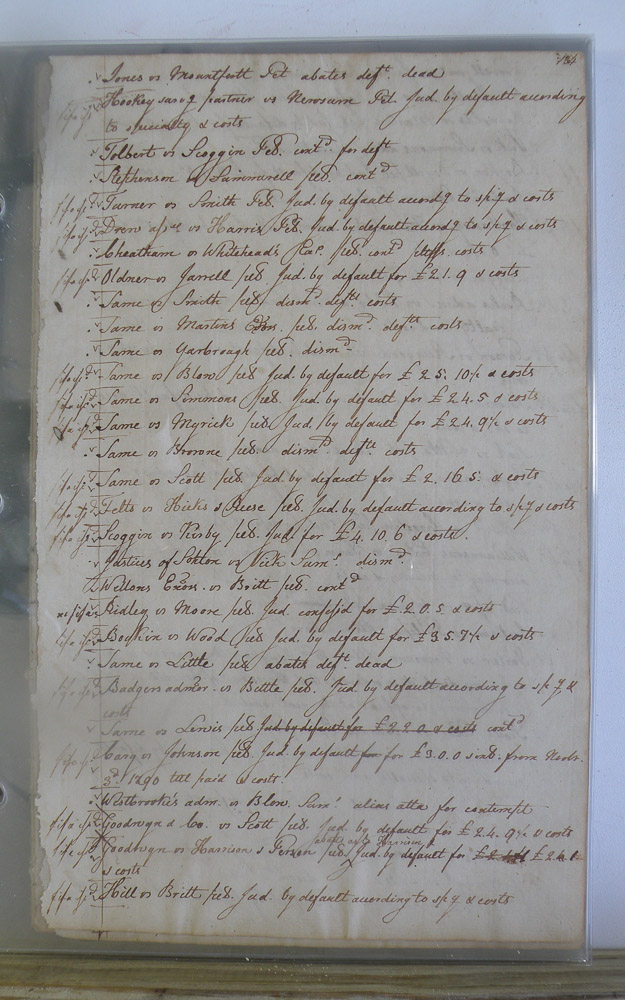 Jones vs Mountfortt Pet abates deft. dead
Hookey surv.g partner vs Newsum Pet. Jud. by default according
to specialty & costs
Tolbert vs Scoggin Ped. contd. for deft
Stephenson vs Summerell ped. contd
fifa Turner vs Smith Ped. Jud. by default accordg to sp.y & costs
fifa Drew vs Harris Ped. Jud. by default accordg to sp.y & costs
Cheatham vs Whitehead's ped. contd pltffs. costs
fifa Oldner vs Jarrell ped Jud. by default for £2.1.9 & costs
Same vs Smith ped. dismd. defts costs
Same vs Martins Exrs. ped. dismd. defts costs
Same vs Yarbrough ped. dismd
fifa Same vs Blow ped. Jud. by default for £2 5. 10½ & costs
fifa Same vs Simmons ped. Jud. by default for £2 4. 5 & costs
fifa Same vs Myrick ped. Jud. by default for £2 4. 9½ & costs
Same vs Browne ped. dismd. defts costs
fifa Same vs Scott ped. Jud by default for £2. 16 5. & costs
Felts vs Hicks & Reese ped. Jud. by default according to sp.y & costs
fifa Scoggin vs Kirby ped. Jud for £4. 10 6 & costs.
Justices of Soton vs Vick Sums. dismd.
Wellons Exors. vs Britt ped. contd
Ridley vs Moore ped. Jud confessd for £2 0. 5 & costs
fifa Bockin vs Wood ped Jud. by default for £3 5. 7½ & costs
Same vs Little ped abates deft dead
Badgers admor. vs Bittle ped. Jud by default according to sp.y &
costs
Same vs Lewis ped Jud by default for £2 2 0 & costs contd
fifa Cary vs Johnson ped. Jud. by default for for £3 0. 0 int. from Novbr.
3d. 1790 till paid & costs.
Westbrooke's adm. vs Blow. Sums. alias atta for contempt
fifa Goodwyn & Co. vs Scott ped. Jud. by default for £2 4. 9½ & costs
abates as to Harrison &
fifa Goodwyn vs Harrison & Person ped Jud. by default for £2 4.
& costs
fifa Hill vs Britt ped. Jud. by default according to sp.y & costs